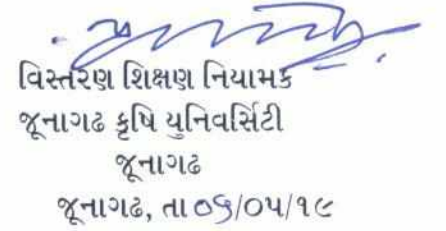 વિસ્તરણ શિક્ષણ નિયામક
જૂનાગઢ કૃષિ યુનિવર્સિટી
જૂનાગઢ
જૂનાગઢ, તા ૦૬/૦૫/૧૯